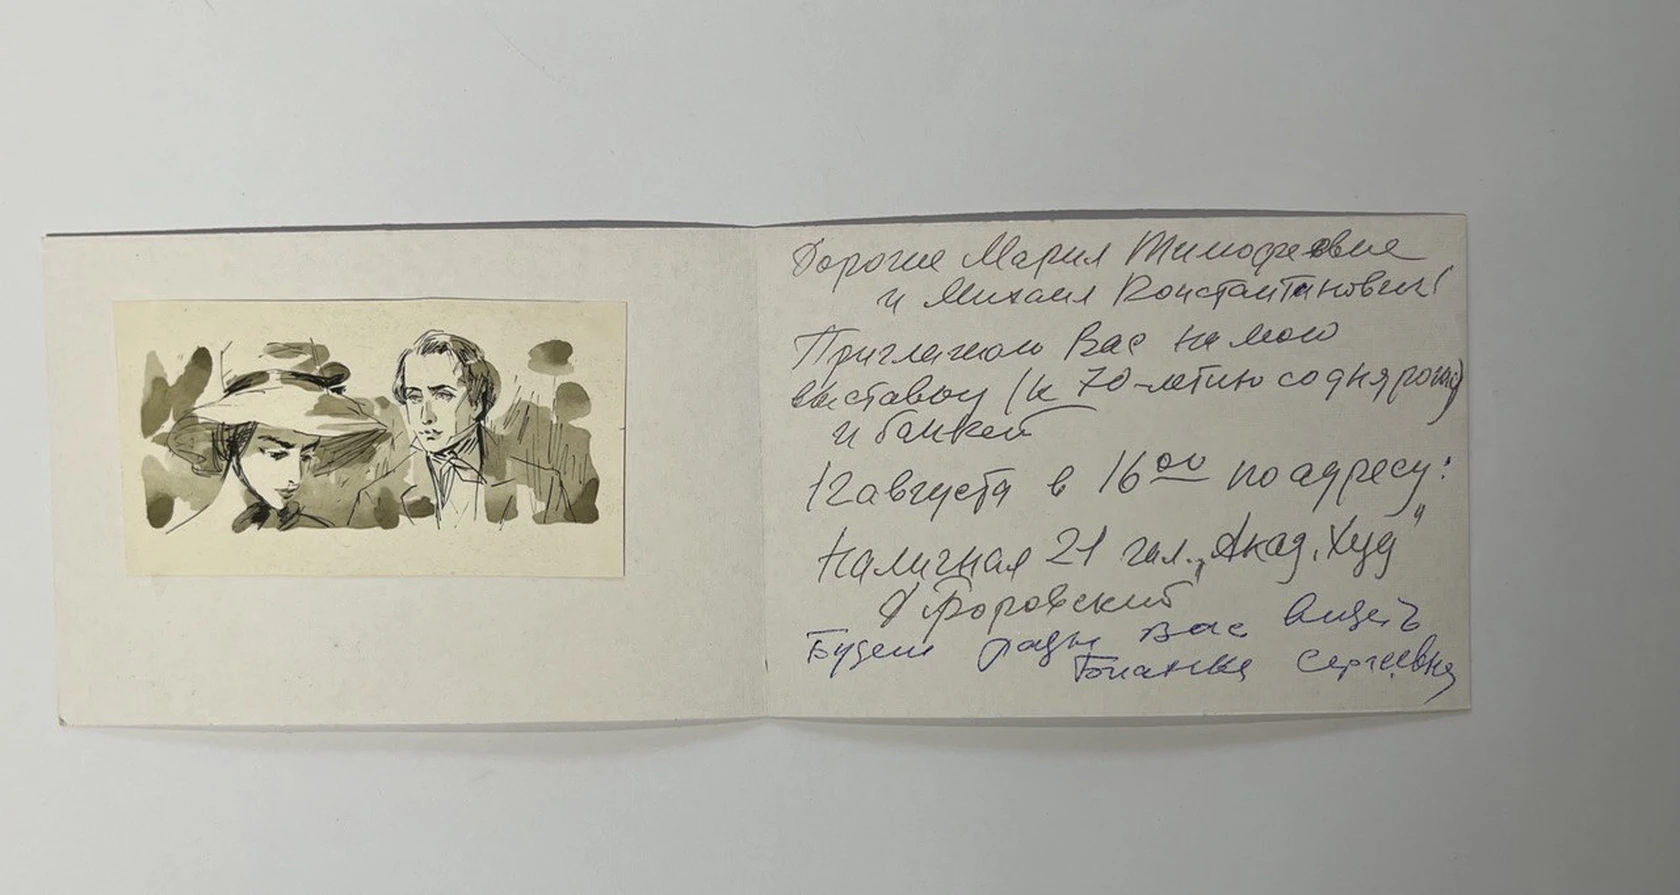 Дорогие Мария Тимофеевна
и Михаил Константинович!
Приглашаю Вас на мою
выставку (к 70-летию со дня рожд)
и банкет
12 августа в 16⁰⁰ по адресу:
Наличная 21 гал. „Акад. Худ"
Д Боровский
Будем рады Вас видеть
Бианка Сергеевна